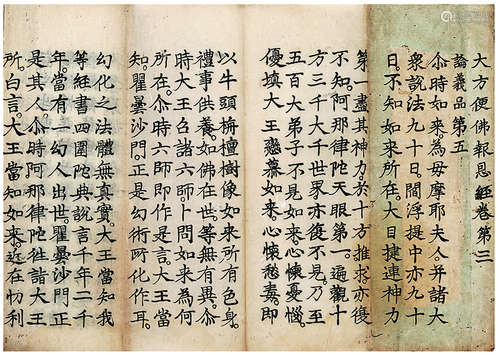 大方便佛報恩經卷第三
論義品第五
尒時如來。為母摩耶夫人。并諸大
衆說法九十日。閻浮提中亦九十
日。不知如來所在。大目揵連神力
第一。盡其神力。於十方推求。亦復
不知。阿那律陀天眼第一。遍觀十
方三千大千世界。亦復不見。乃至
五百大弟子。不見如來。心懷憂惱。
優填大王。戀慕如來。心懷愁毒。即
以牛頭栴檀。樹像如來所有色身。
禮事供養。如佛在世。等無有異。尒
時大王召諸六師。卜問如來為何
所在。尒時六師即作是言。大王當
知。瞿曇沙門。正是幻術所化作耳。
幻化之法。體無真實。大王當知。我
等經書四圍陀典說言。千年二千
年。當有一幻人出世。瞿曇沙門正
是其人。尒時阿那律陀。往詣大王
所白言。大王當知。如來近在忉利